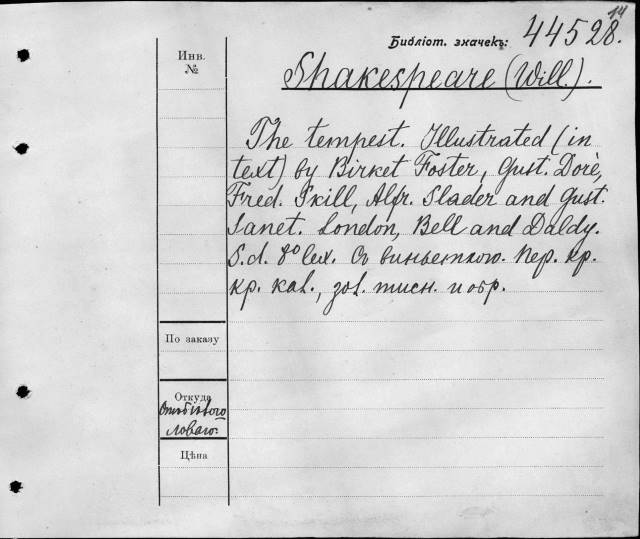 14
Библіот. значекъ: 44528.
Инв.
№
Shakespeare (Will.).
The tempest. Illustrated (in
text) by Birket Foster, Gust. Dorè,
Fred. Skill, Alfr. Slader and Gust.
Janet. London, Bell and Daldy.
S.d. 8° lex. Съ виньеткою. Пер. кр.
кр. кal., зol. тисн. и обр.
По заказу
Откуда
Цѣна